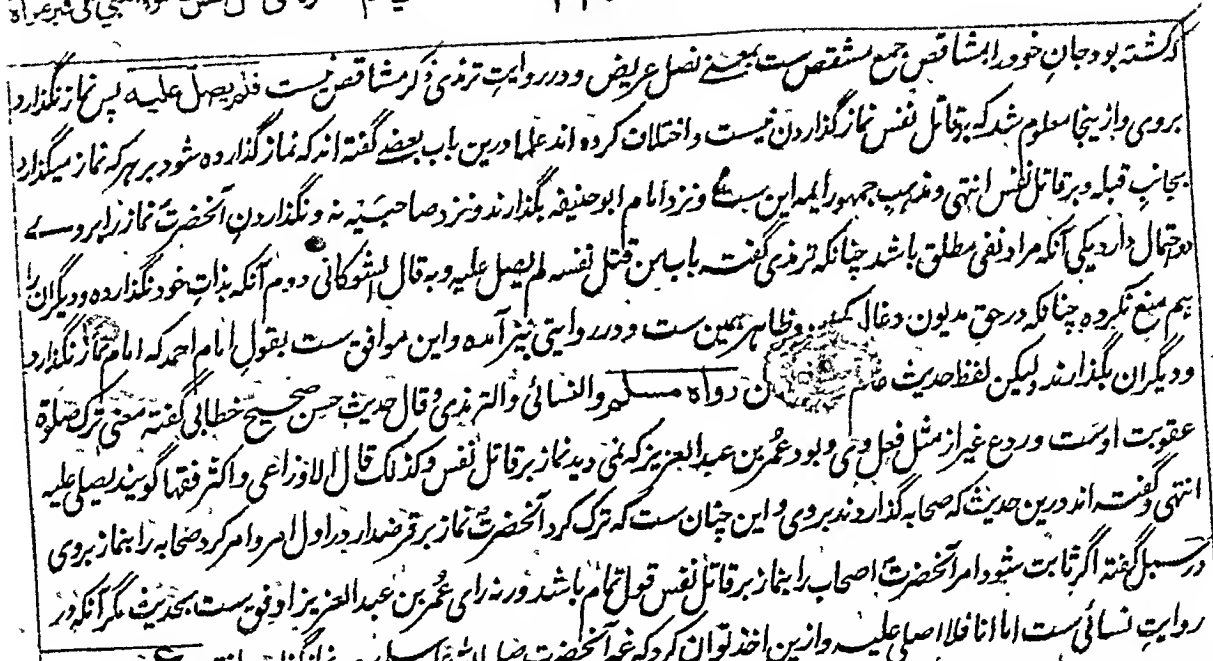 کشته بود جان خود را بمشاقص جمع مشقص ست بمعنے نصل عریض و در روایت ترمذی ذکر مشاقص نیست فلم یصل علیه پس نماز نگذارد
بروی و ازینجا معلوم شد که بر قاتل نفس نماز گذاردن نیست و اختلاف کرده اند علما درین باب بعضے گفته اند که نماز گذارده شود بر هر که نماز میگذارد
بجانب قبله و بر قاتل نفس انتهی و مذهب جمهور ایمه این ست و نزد امام ابو حنیفه بگذارند و نزد صاحبینه نه و نگذاردن آنحضرت نماز را بروے
دو احتمال دارد یکی آنکه مراد نفی مطلق باشد چنانکه ترمذی گفته باب من قتل نفسه لم یصل علیه و به قال الشوکانی دوم آنکه بذات خود نگذارده و دیگران را
هم منع نکرده چنانکه در حق مدیون و غال و ظاهر همین ست و در روایتی نیز آمده و این موافق ست بقول امام احمد که امام نماز نگذارد
و دیگران بگذارند ولیکن لفظ حدیث رواه مسلم والنسائی والترمذی و قال حدیث حسن صحیح خطابی گفته معنی ترک صلوة
عقوبت اوست و ردع غیر از مثل فعل وی و بود عمر بن عبد العزیز که نمی دید نماز بر قاتل نفس و کذلک قال الاوزاعی و اکثر فقها گویند یصلی علیه
انتهی و گفته اند درین حدیث که صحابه گذاردند بروی و این چنان ست که ترک کرد آنحضرت نماز بر قرضدار در اول امر و امر کرد صحابه را بنماز بروی
در سبل گفته اگر ثابت شود امر آنحضرت اصحاب را بنماز بر قاتل نفس قول تمام باشد ورنه رای عمر بن عبد العزیز اوفق ست بحدیث مگر آنکه در
روایت نسائی ست اما انا فلا اصلی علیه و ازین اخذ توان کرد که غیر آنحضرت